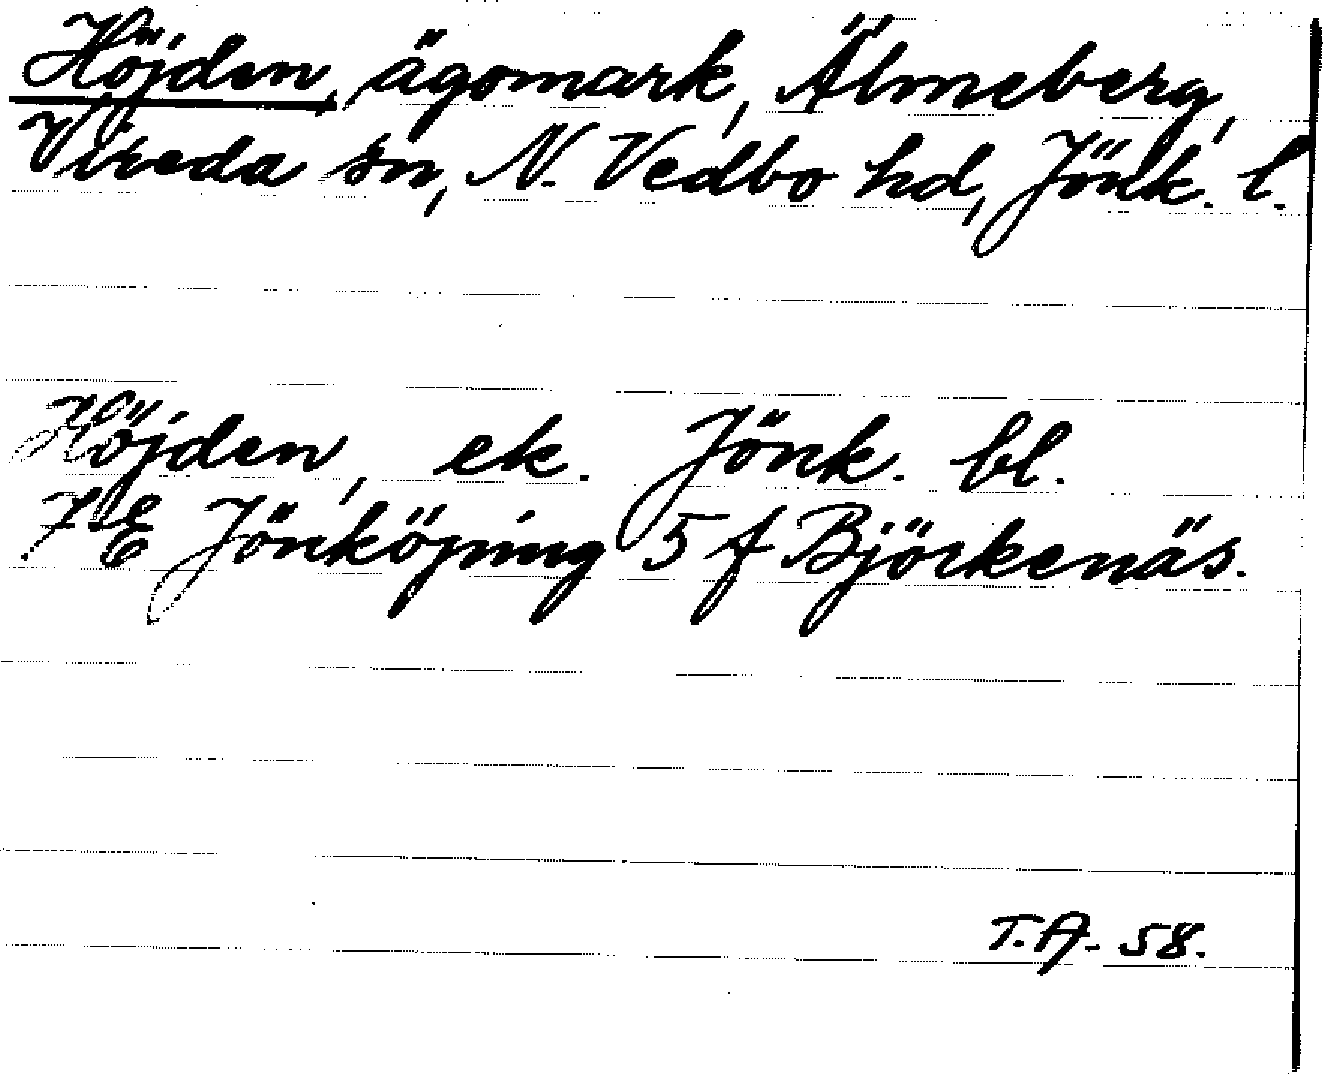 Höjden, ägomark, Älmeberg,
Vireda sn, N. Vedbo hd, Jönk. l.
Höjden, ek. Jönk. bl.
7E Jönköping 5 f Björkenäs.
T.A. 58.